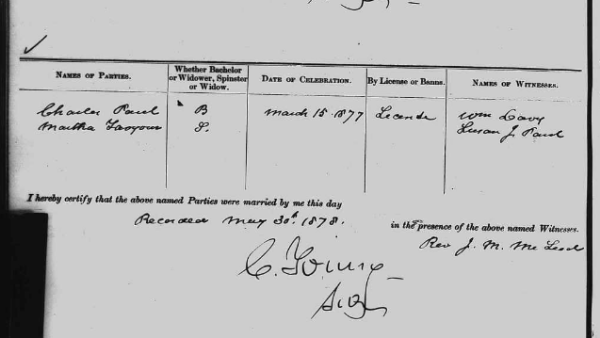 NAMES OF PARTIES. Whether Bachelor or Widower, Spinster or Widow. DATE OF CELEBRATION. By License or Banns. NAMES OF WITNESSES.
Charles Paul B March 15 1877 License Wm Davy
Martha S. Susan J. Paul
I hereby certify that the above named Parties were married by me this day
Recorded May 30th 1878. in the presence of the above named Witnesses.
Rev J. M. McLeod
C. Young